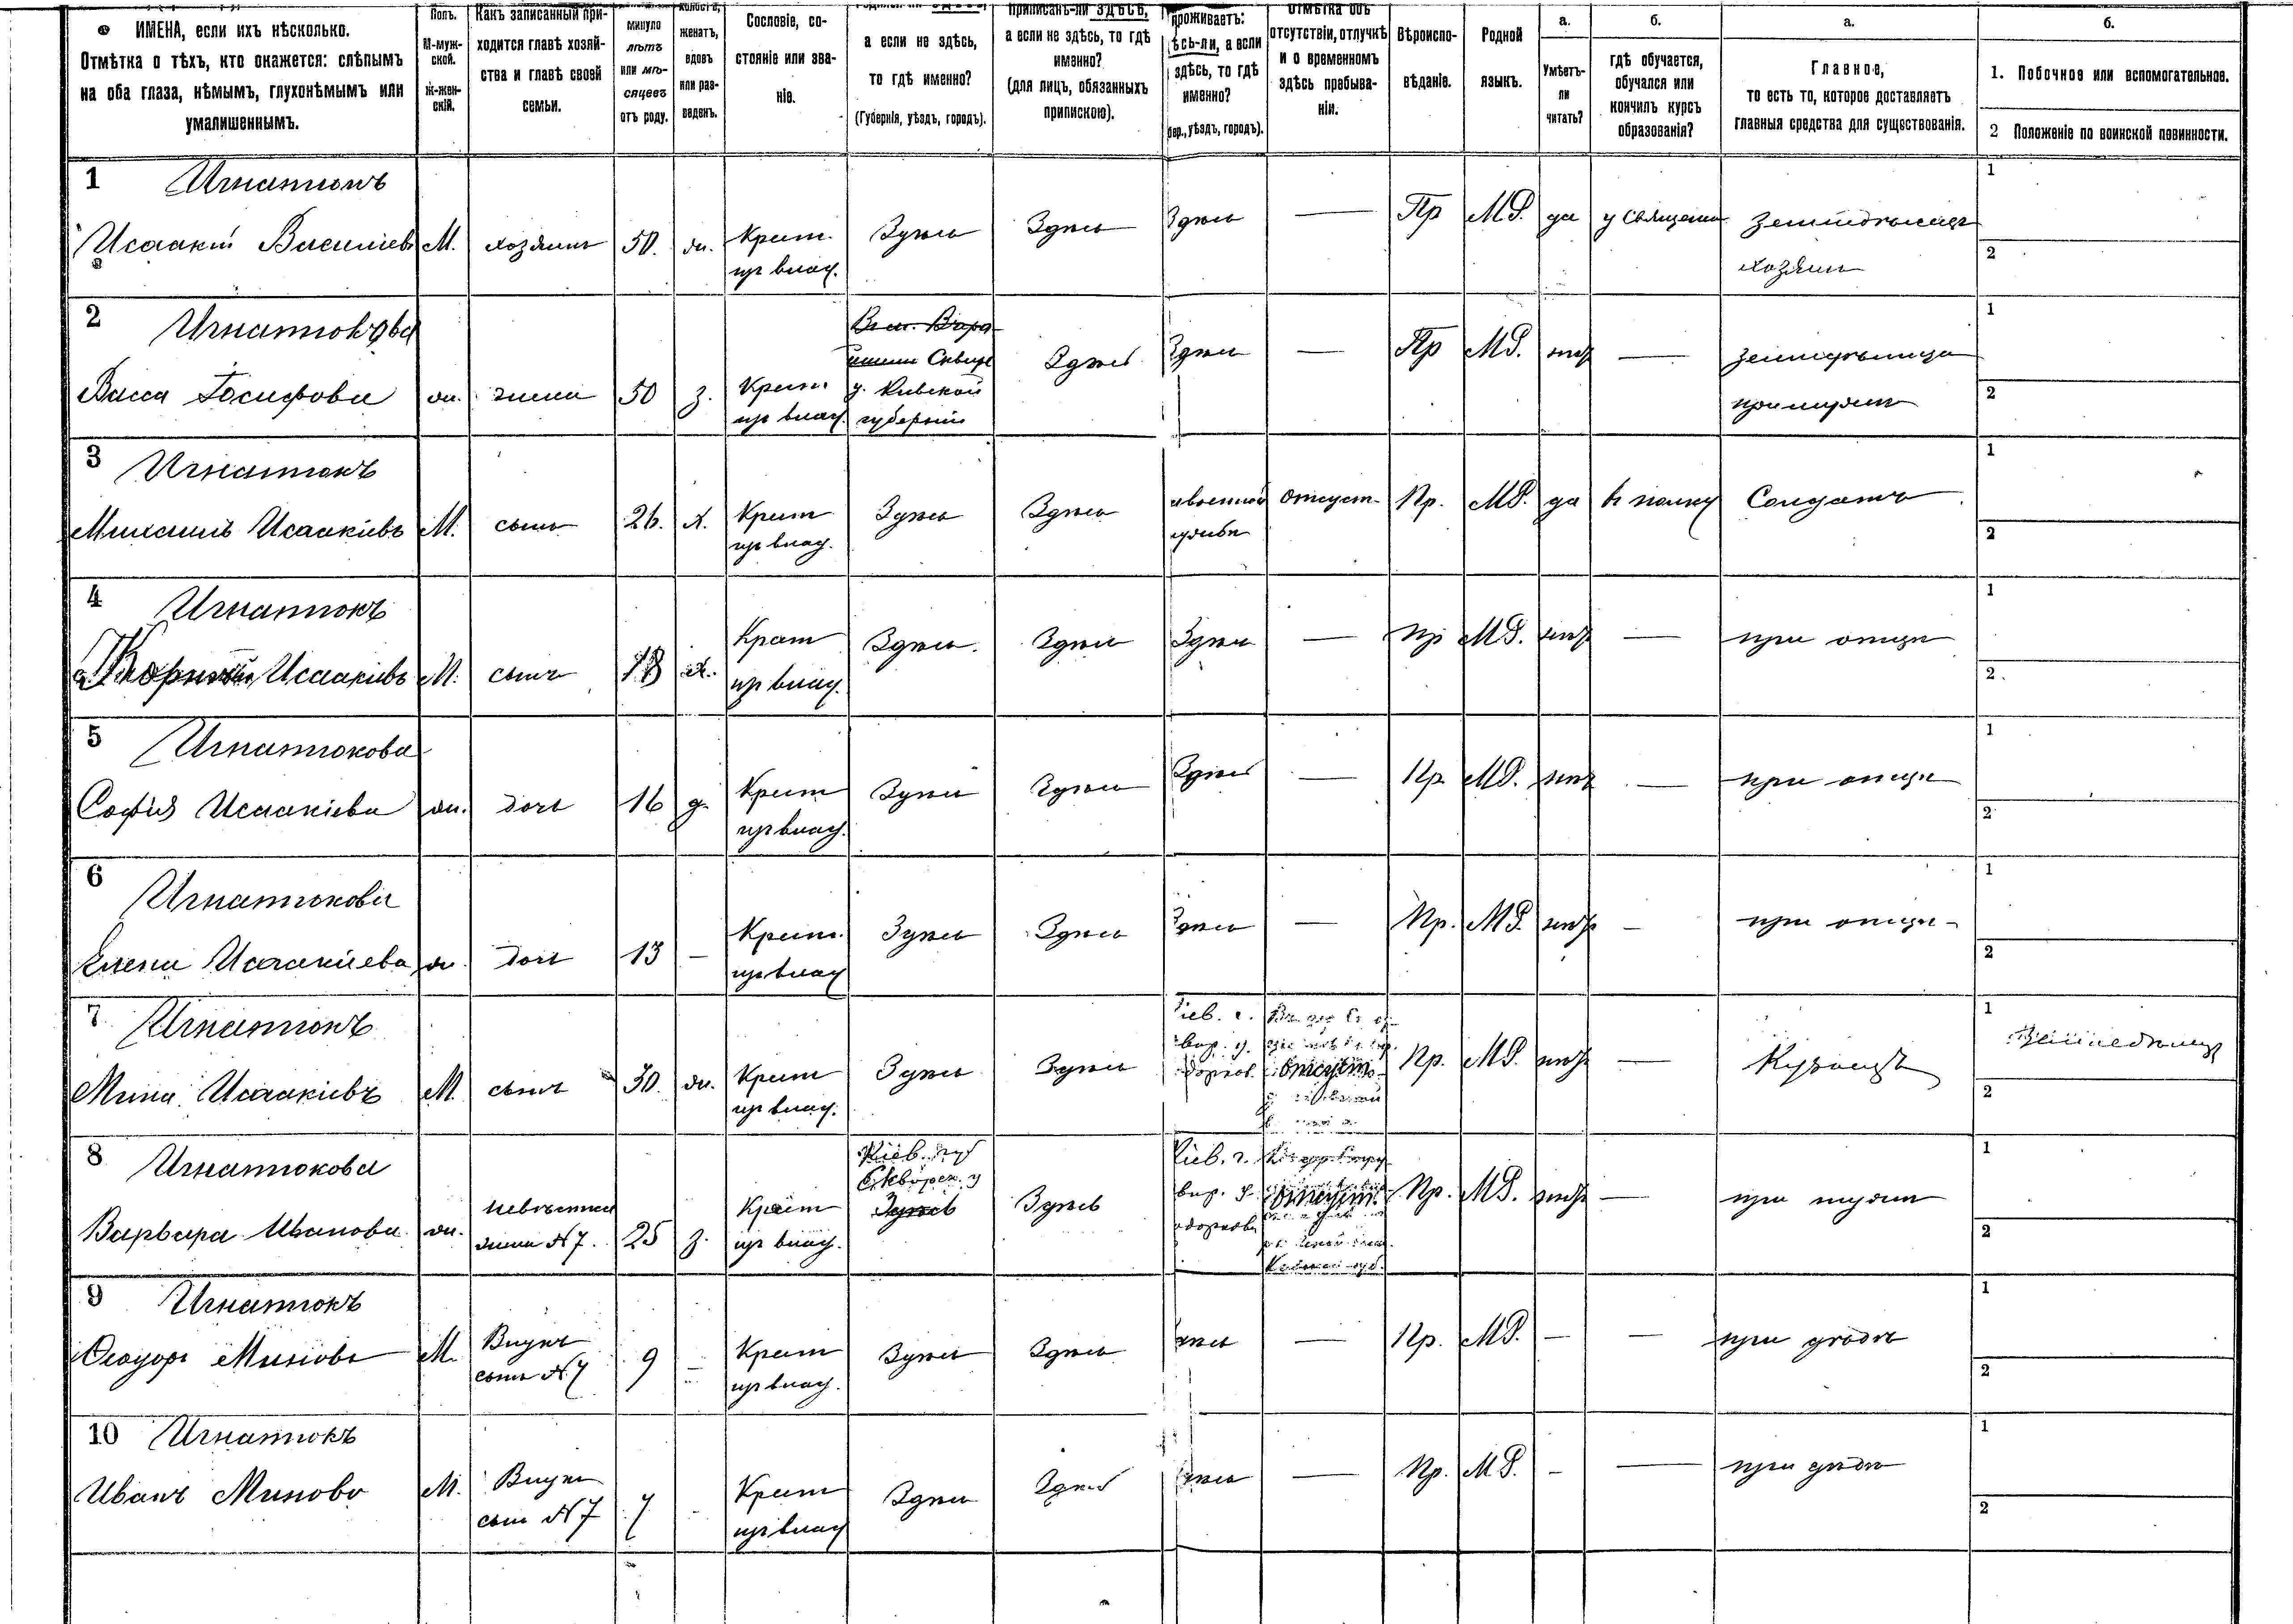 ИМЕНА, если ихъ нѣсколько.
Отмѣтка о тѣхъ, кто окажется: слѣпымъ
на оба глаза, нѣмымъ, глухонѣмымъ или
умалишеннымъ.
Полъ.
М-муж-
ской.
Ж-жен-
скій.
Какъ записанный при-
ходится главѣ хозяй-
ства и главѣ своей
семьи.
минуло
лѣтъ
или мѣ-
сяцевъ
отъ роду.
холостъ,
женатъ,
вдовъ
или раз-
веденъ.
Сословіе, со-
стояніе или зва-
ніе.
а если не здѣсь,
то гдѣ именно?
(Губернія, уѣздъ, городъ).
приписанъ-ли ЗДѢСЬ,
а если не здѣсь, то гдѣ
именно?
(для лицъ, обязанныхъ
припискою).
проживаетъ:
ѣсь-ли, а если
здѣсь, то гдѣ
именно?
бер., уѣздъ, городъ).
Отмѣтка объ
отсутствіи, отлучкѣ
и о временномъ
здѣсь пребыва-
ніи.
Вѣроиспо-
вѣданіе.
Родной
языкъ.
а.
Умѣетъ-
ли
читать?
б.
гдѣ обучается,
обучался или
кончилъ курсъ
образованія?
а.
Главное,
то есть то, которое доставляетъ
главныя средства для существованія.
б.
1. Побочное или вспомогательное.
2 Положеніе по воинской повинности.
1 Игнатюкъ
Исаакій Василіевъ М. хозяинъ 50. ж. Крест. Здѣсь Здѣсь Здѣсь — Пр М.Р. да у священ. Земледѣлецъ
изъ влад. хозяинъ
1
2
2 Игнатюкова
Васса Іосифова ж. жена 50 з. Крест.
изъ влад.
Сквир.
у. Кіевской
губерніи
Здѣсь Здѣсь — Пр М.Р. нѣтъ —
1
2
3 Игнатюкъ
Михаилъ Исаакіевъ М. сынъ 26. х. Крест Здѣсь Здѣсь военной отсуст. Пр. М.Р. да въ полку Солдатъ
изъ влад. службѣ
1
2
4 Игнатюкъ
Исаакіевъ М. сынъ 18 х. Крест Здѣсь Здѣсь Здѣсь — Пр М.Р. нѣтъ — при отцѣ
изъ влад.
1
2
5 Игнатюкова
Софія Исаакіева ж. дочь 16 д. Крест Здѣсь Здѣсь Здѣсь — Пр. М.Р. нѣтъ — при отцѣ
изъ влад.
1
2
6 Игнатюкова
Елена Исаакіева ж. дочь 13 — Крест. Здѣсь Здѣсь Здѣсь — Пр. М.Р. нѣтъ — при отцѣ
изъ влад
1
2
7 Игнатюкъ
Мина Исаакіевъ М. сынъ 30. ж. Крест Здѣсь Здѣсь
изъ влад.
іев. г.
вир. у.
отсуст
Пр. М.Р. нѣтъ — Кузнецъ
1 Земледѣлецъ
2
8 Игнатюкова
Варвара Иванова ж. невѣстка
жена №7. 25 з. Крест
изъ влад.
Кіев. губ
Сквирск. у
Здѣсь
Здѣсь
Кіев. г.
вир. у.
отсуст.
Пр. М.Р. нѣтъ — при мужѣ
1
2
9 Игнатюкъ
Ѳеодоръ Миновъ М. Внукъ
сынъ №7 9 — Крест Здѣсь Здѣсь ѣсь — Пр. М.Р. — — при дѣдѣ
изъ влад.
1
2
10 Игнатюкъ
Иванъ Миновъ М. Внукъ
сынъ №7 7 - Крест Здѣсь Здѣсь ѣсь — Пр. М.Р. — — при дѣдѣ
изъ влад
1
2